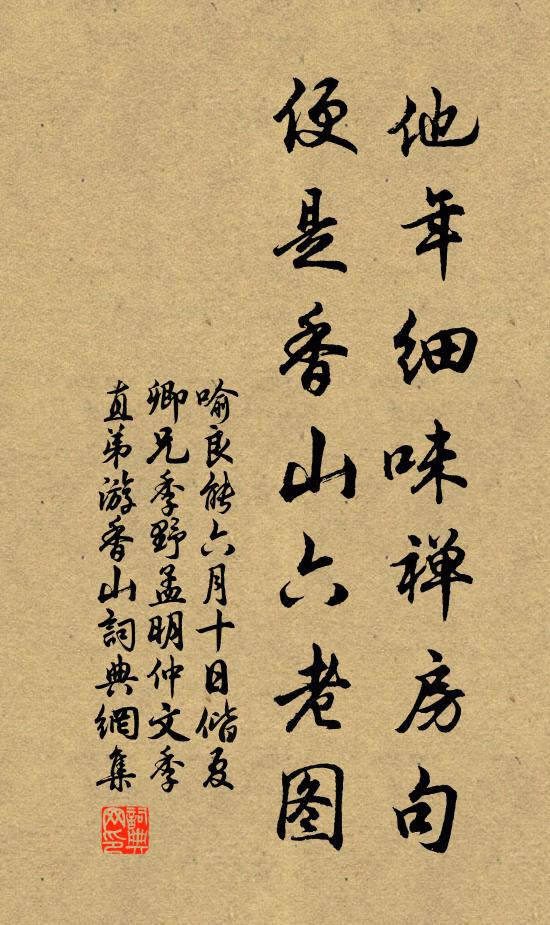 他年细味禅房句
便是香山六老图
喻良能六月十日偕夏
卿兄季野孟明仲文季
直弟游香山詞典網集
詞典网印